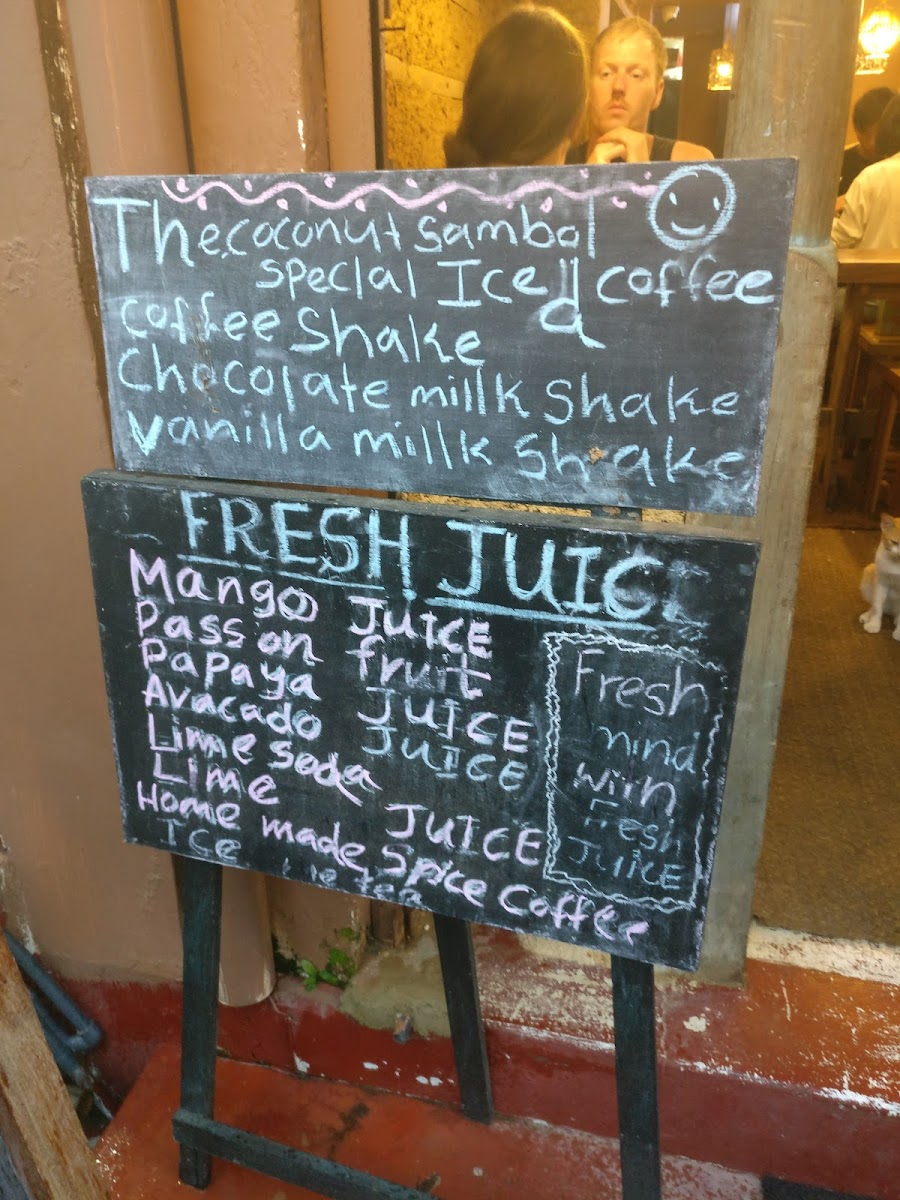 The coconut sambol
special Iced coffee
coffee shake
Chocolate millk shake
vanilla millk shake
FRESH JUICE
Mango JUICE
Passon fruit
Papaya JUICE
Avacado JUICE
Lime soda
Lime JUICE
Home made spice coffee
ICe tea
Fresh
mind
with
Fresh
JUICE